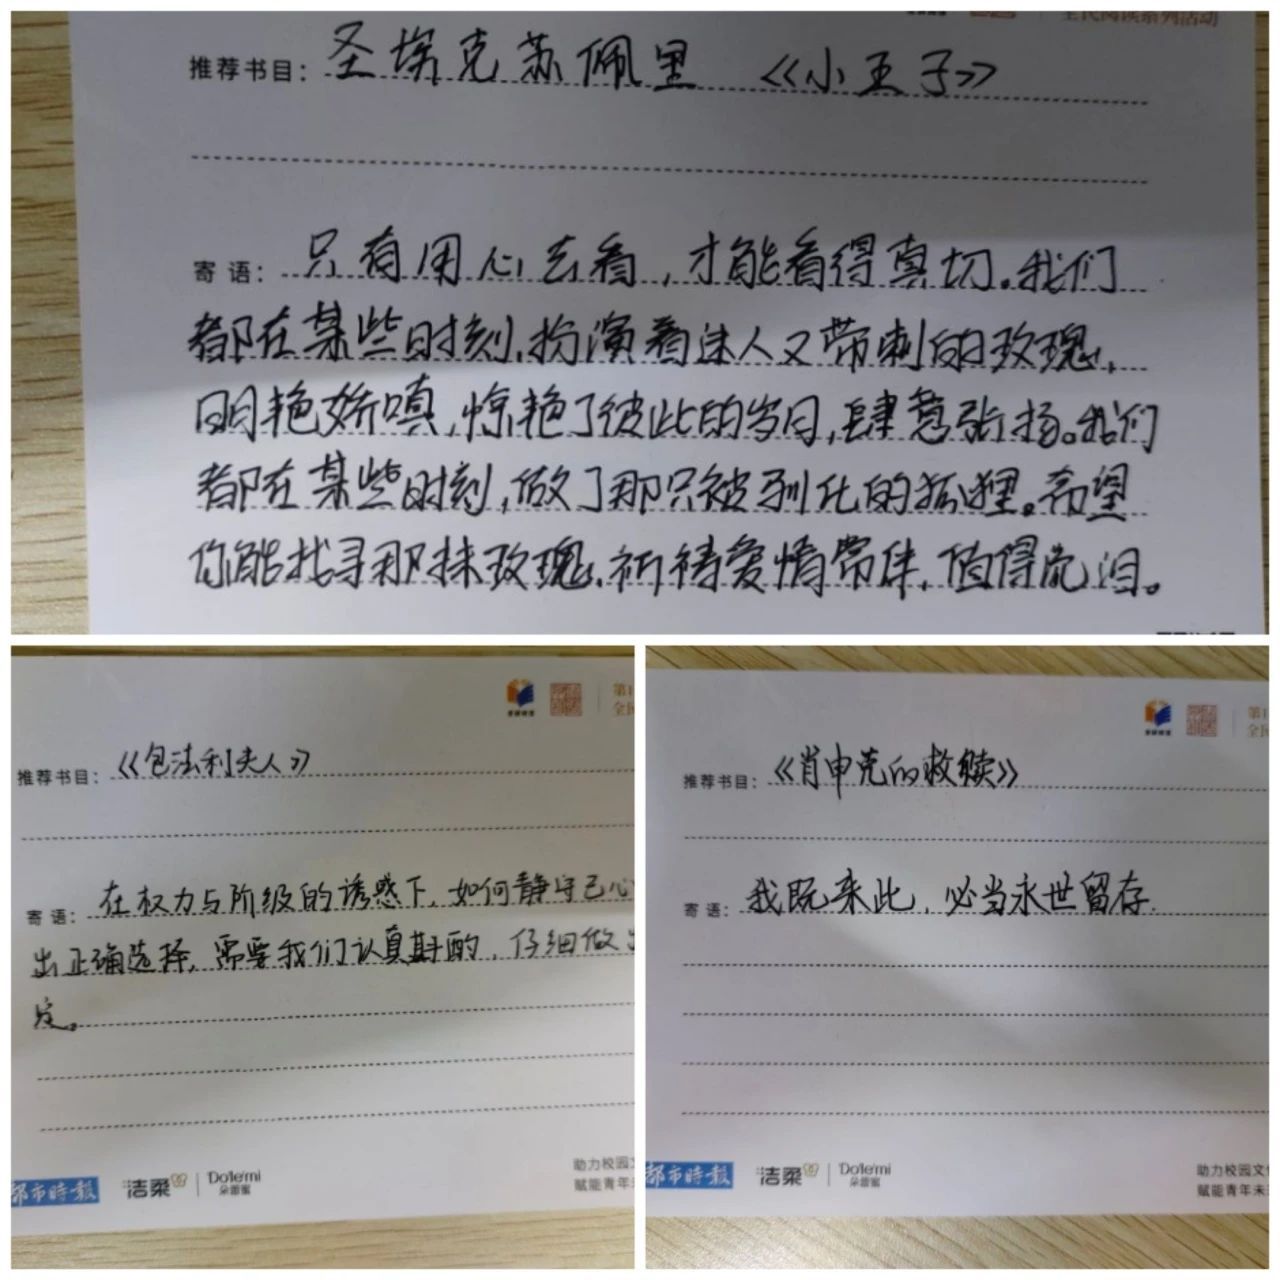 全民阅读系列活动
推荐书目：圣埃克苏佩里 《小王子》
寄语：只有用心去看，才能看得真切。我们
都在某些时刻，扮演着迷人又带刺的玫瑰，
明艳娇嗔，惊艳了彼此的岁月，肆意张扬。我们
都在某些时刻，做了那只被驯化的狐狸。希望
你能找寻那抹玫瑰，祈祷爱情常伴，值得流泪。
推荐书目：《包法利夫人》
寄语：在权力与阶级的诱惑下，如何静守己心
出正确选择，需要我们认真斟酌，仔细做
定。
都市時報 洁柔 Dolemi 朵蕾蜜
助力校园文
赋能青年未
推荐书目：《肖申克的救赎》
寄语：我既来此，必当永世留存.
都市時報 洁柔 Dolemi 朵蕾蜜
助力校园文
赋能青年未